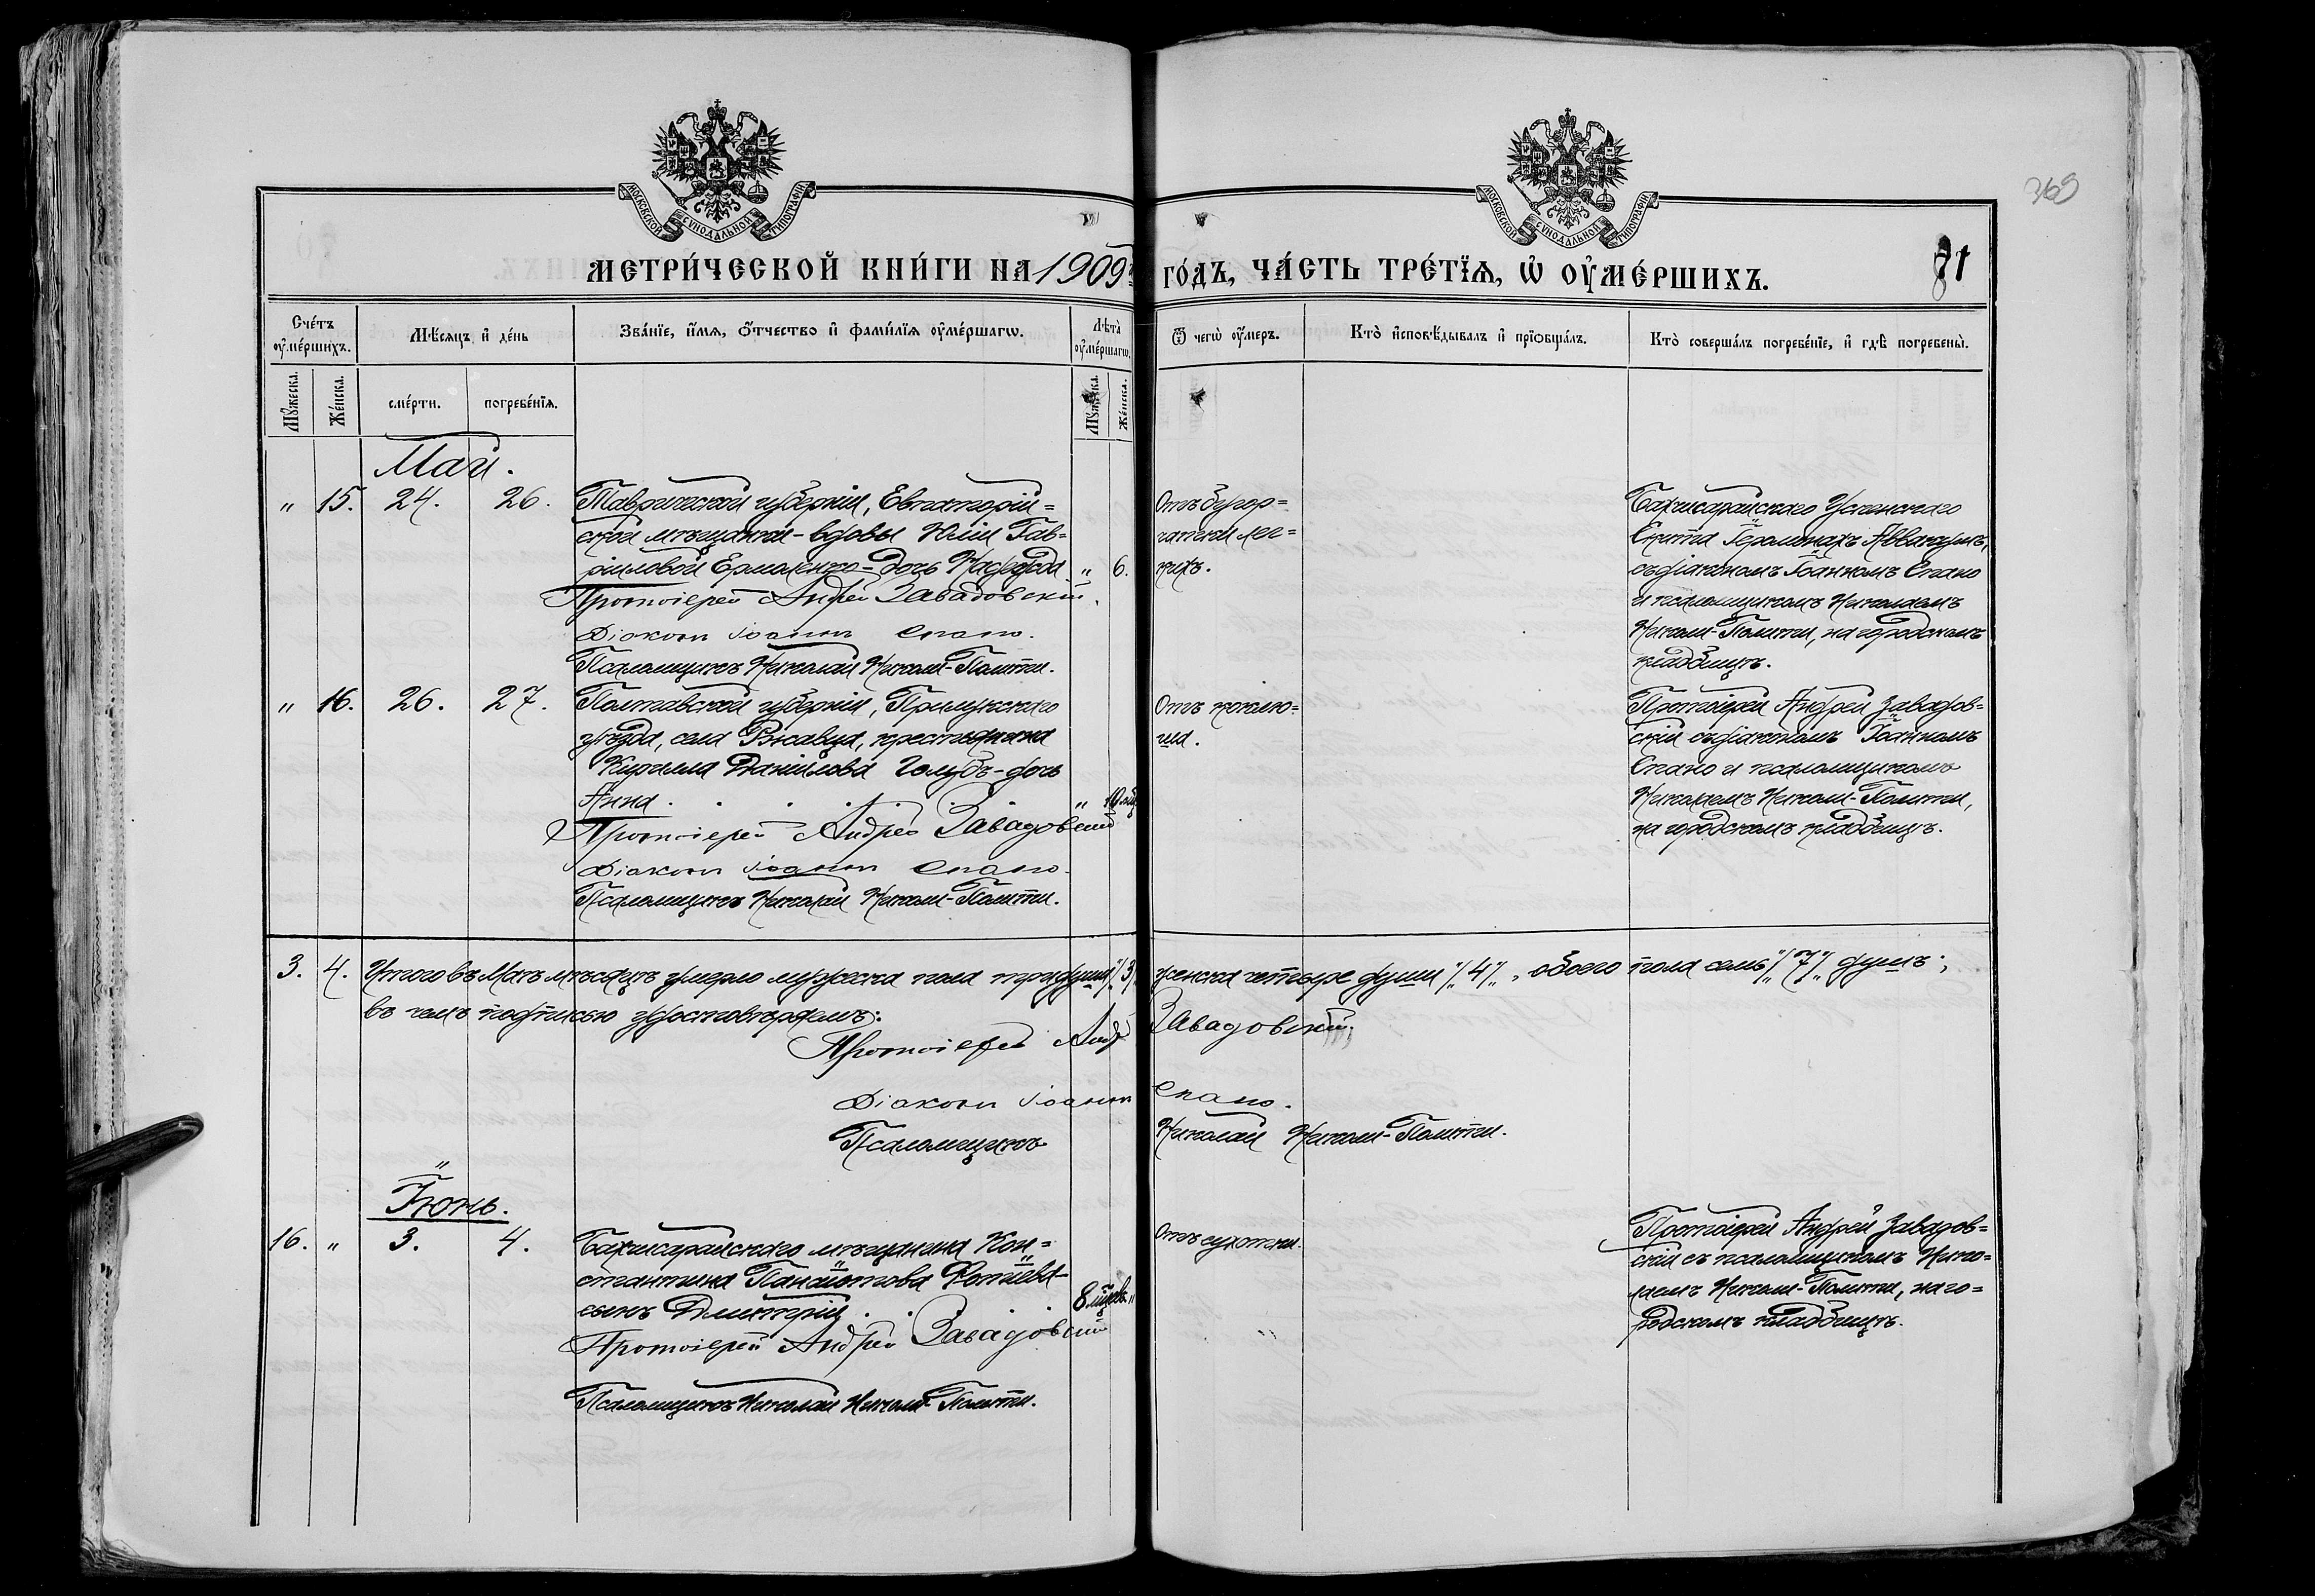 369
МОСКОВСКОЙ СѴНОДАЛЬНОЙ ТИПОГРАФІИ
МОСКОВСКОЙ СѴНОДАЛЬНОЙ ТИПОГРАФІИ
МЕТРИ́ЧЕСКОЙ КНИ́ГИ НА 1909й
ГО́ДЪ, ЧА́СТЬ ТРЕ́ТЇѦ, Ѡ҆ ОУ҆МЕ́РШИХЪ.
81
Сче́тъ оу҆ме́ршихъ.
Мѣ́сяцъ и҆ де́нь
Зва́нїе, и҆́мѧ, ѻ҆́тчество и҆ фами́лїѧ оу҆ме́ршагѡ.
Лѣ́та оу҆ме́ршагѡ.
Ѿ чегѡ̀ оу҆́меръ.
Кто̀ и҆сповѣ́дывалъ и҆ прїѻбща́лъ.
Кто̀ соверша́лъ погребе́нїе, и҆ гдѣ̀ погребены̀.
Мꙋ́жеска.
Же́нска.
сме́рти.
погребе́нїѧ.
Мꙋ́жеска.
Же́нска.
Май.
" 15. 24. 26.
Таврической губерніи, Евпаторій=
ской мѣщанки-вдовы Юліи Гав=
риловой Ермоленко-дочь Надежда " 6.
Протоіерей Андрей Завадовскій.
Діаконъ Іоаннъ Спано.
Псаломщикъ Николай Николи-Политти.
Отъ бугор=
чатки лег=
кихъ.
Бахчисарайскаго Успенскаго
Скита Іеромонахъ Аввакумъ,
съ діакономъ Іоанномъ Спано
и псаломщикомъ Николаемъ
Николи-Политти, на городскомъ
кладбищѣ.
" 16. 26. 27.
Полтавской губерніи, Прилукскаго
уѣзда, села Рж�авца, крестьянина
Кирилла Даніилова Голубъ-дочь
Анна. " 10 мѣ
Протоіерей Андрей Завадовскій
Діаконъ Іоаннъ Спано.
Псаломщикъ Николай Николи-Политти.
Отъ коклю=
ша.
Протоіерей Андрей Завадов=
скій съ діакономъ Іоанномъ
Спано и псаломщикомъ
Николаемъ Николи-Политти,
на городскомъ кладбищѣ.
3. 4. Итого въ Маѣ мѣсяцѣ умерло мужеска пола три души "/3/" женска четыре души "/4/", обоего пола семь "/7/" душъ;
въ чемъ подписью удостовѣряемъ:
Протоіерей Андр Завадовскій.
Діаконъ Іоаннъ Спано.
Псаломщикъ Николай Николи-Политти.
Іюнь.
16. " 3. 4.
Бахчисарайскаго мѣщанина Кон=
стантина Панаіотова Фотіева-
сынъ Димитрій 8 мѣсяцев. "
Протоіерей Андрей Завадовскій
Псаломщикъ Николай Николи-Политти.
Отъ сухотки.
Протоіерей Андрей Завадов=
скій съ псаломщикомъ Нико=
лаемъ Николи-Политти, на го=
родскомъ кладбищѣ.